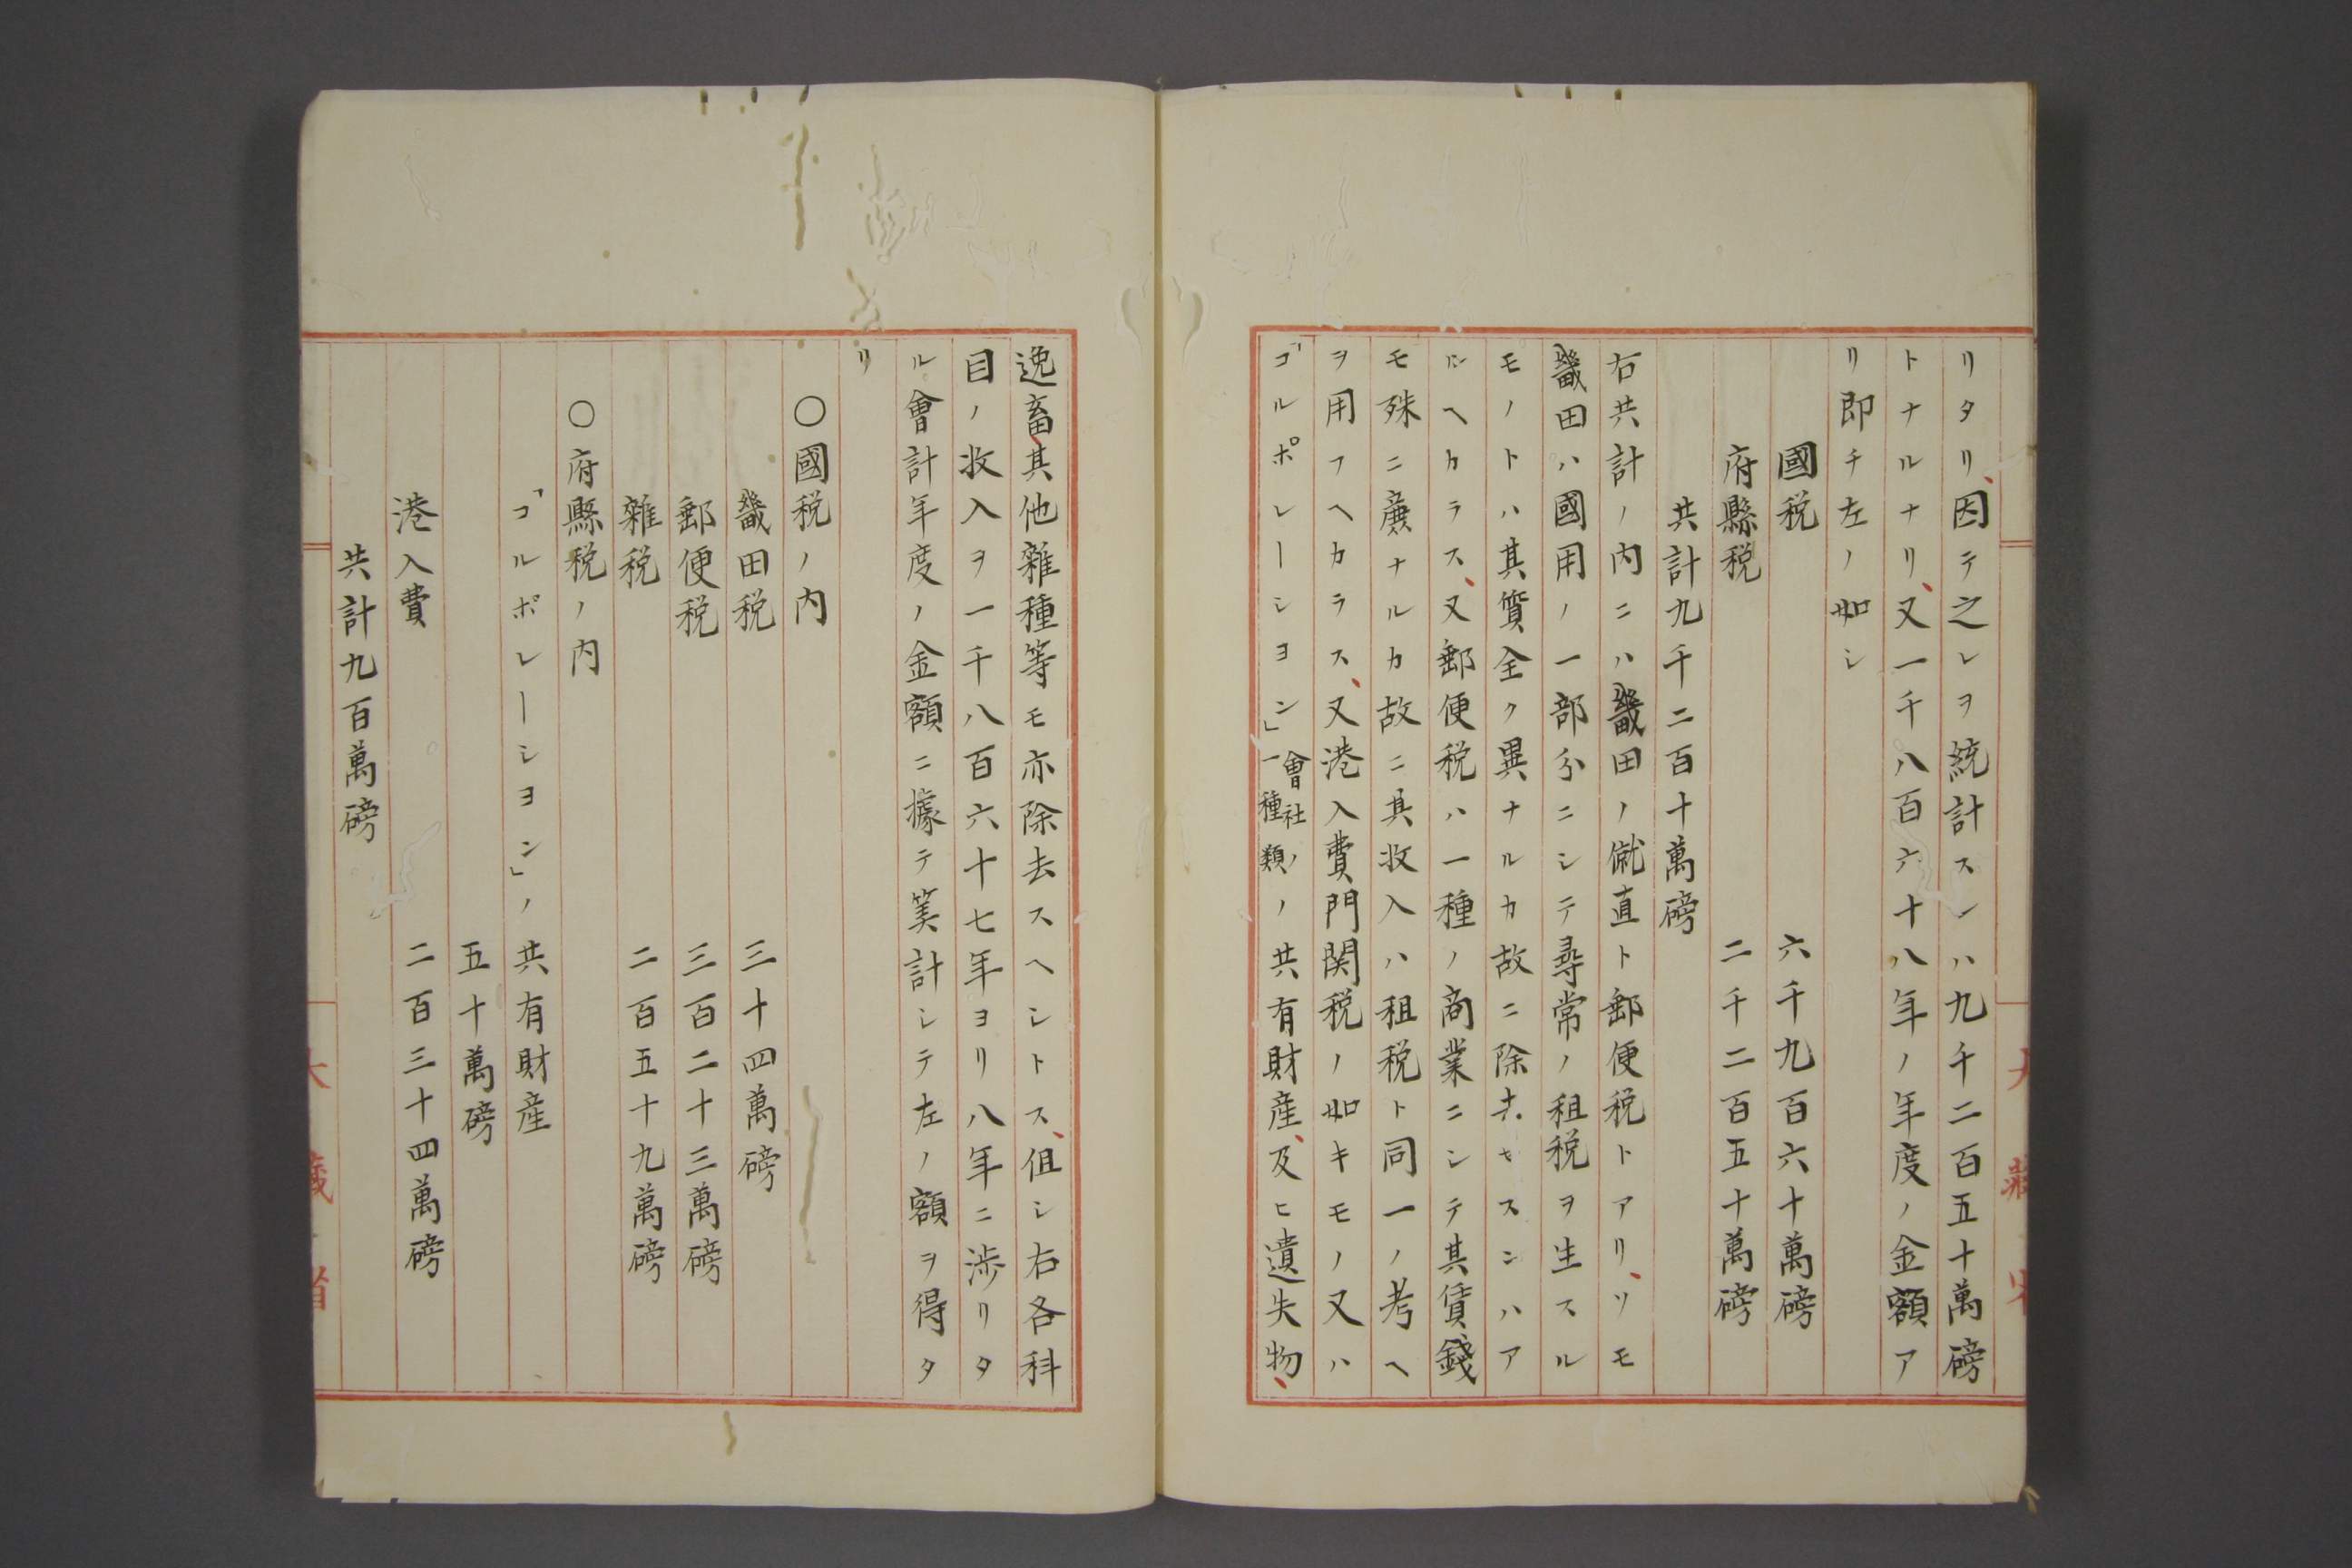 リタリ、因テ之レヲ統計スレハ九千二百五十萬磅
トナルナリ、又一千八百六十八年ノ年度ノ金額ア
リ即チ左ノ如シ
國税 六千九百六十萬磅
府縣税 二千二百五十萬磅
共計九千二百十萬磅
右共計ノ内ニハ畿田ノ僦直ト郵便税トアリ、ソモ
畿田ハ國用ノ一部分ニシテ尋常ノ租税ヲ生スル
モノトハ其質全ク異ナルカ故ニ除去セスンハア
ルヘカラス、又郵便税ハ一種ノ商業ニシテ其賃錢
モ殊ニ廉ナルカ故ニ其收入ハ租税ト同一ノ考ヘ
ヲ用フヘカラス、又港入費門関税ノ如キモノ又ハ
「コルポレーシヨン」會社ノ一種類ノ共有財産、及ヒ遺失物、
逸畜其他雜種等モ亦除去スヘシトス、但シ右各科
目ノ收入ヲ一千八百六十七年ヨリ八年ニ渉リタ
ル會計年度ノ金額ニ據テ筭計シテ左ノ額ヲ得タ
リ
〇國税ノ内
畿田税 三十四萬磅
郵便税 三百二十三萬磅
雜税 二百五十九萬磅
〇府縣税ノ内
「コルポレーシヨン」ノ共有財産
五十萬磅
港入費 二百三十四萬磅
共計九百萬磅
大藏省